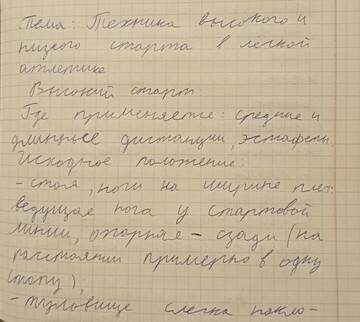 Тема: Техника высокого и
низкого старта в лёгкой
атлетике
Высокий старт:
Где применяется: средние и
длинные дистанции, эстафеты
Исходное положение:
- стоя, ноги на ширине плеч
ведущая нога у стартовой
линии, опорная - сзади (на
расстоянии примерно в одну
стопу),
- туловище слегка накло-